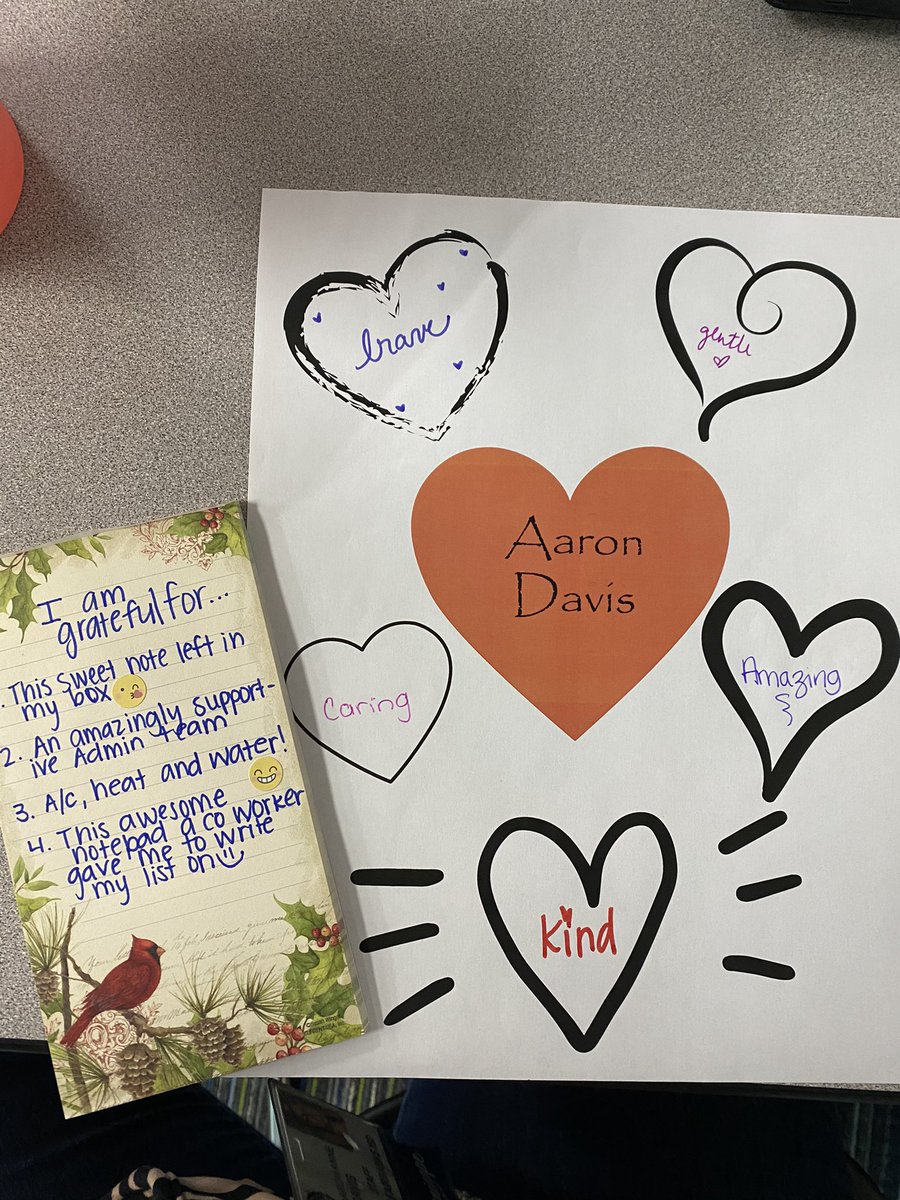 brave
gentle
Aaron
Davis
Caring
Amazing
Kind
I am
grateful for...
1. This sweet note left in
my box
2. An amazingly support-
ive Admin Team
3. A/c, heat and water!
4. This awesome
notepad a co worker
gave me to write
my list on